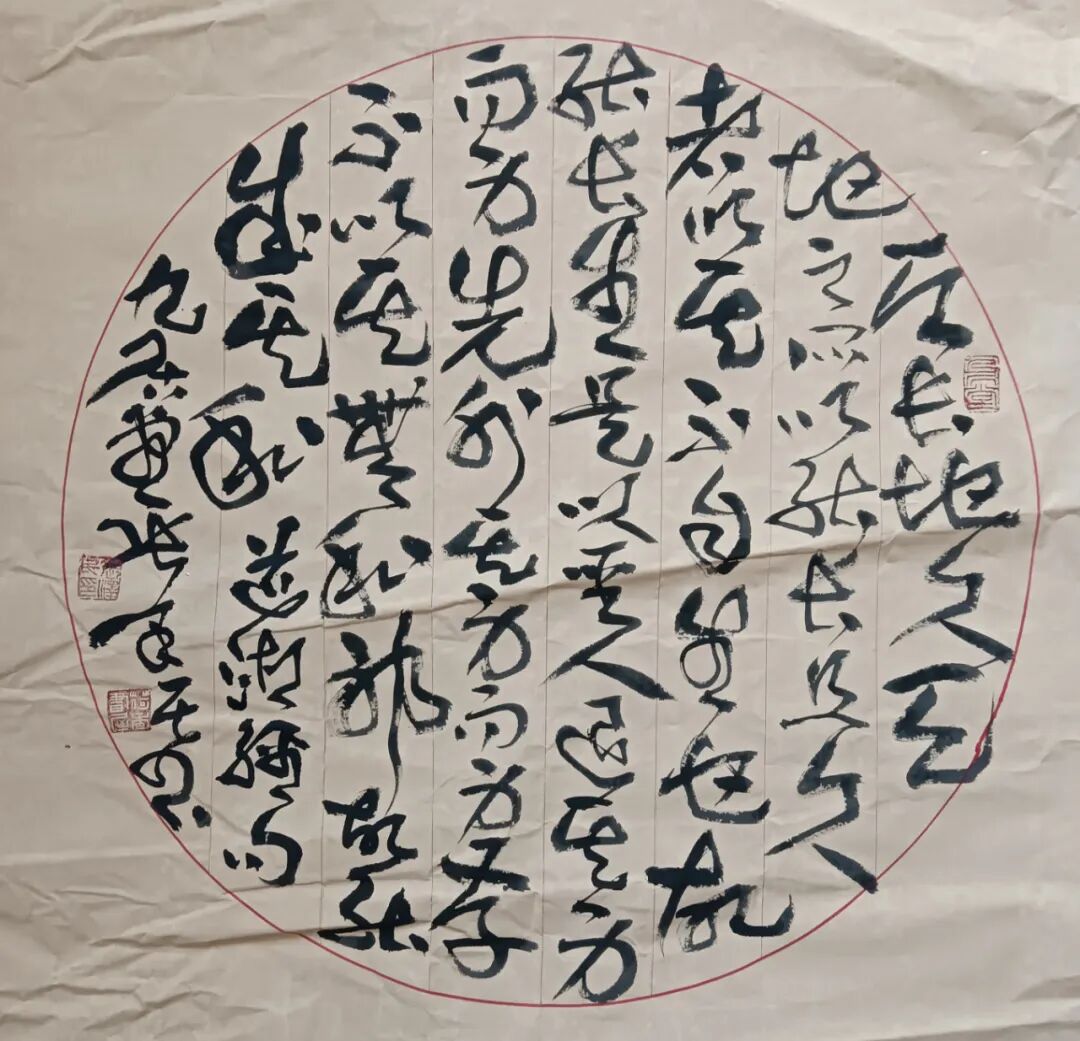 天长地久天
地之所以能长且久
者以其不自生也故
能长生是以聖人退其身
而身先外其身而身存
不以其無私邪故能
成其私 道德經句
九 张 书